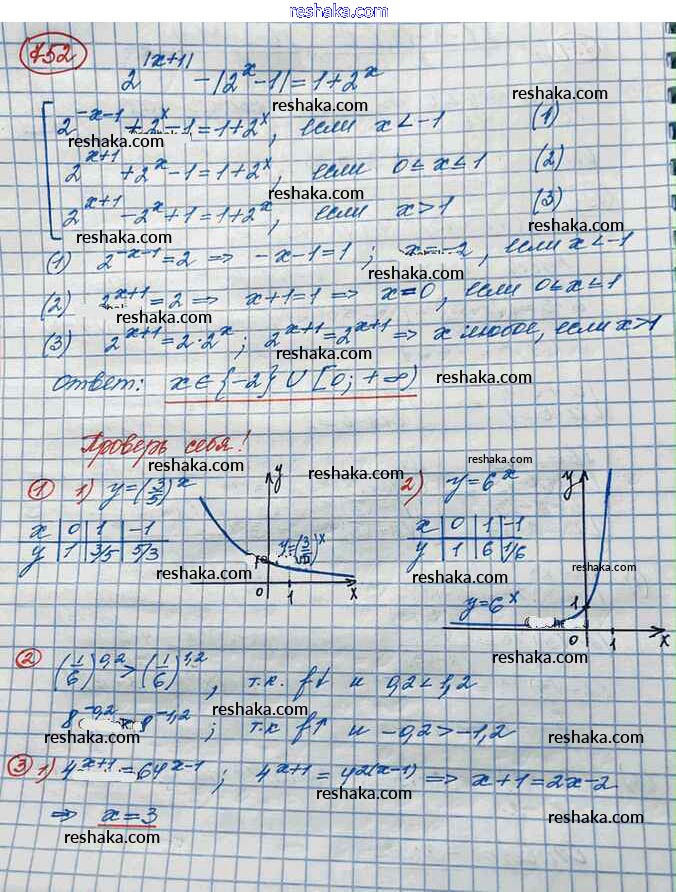 reshaka.com
752
2^|x+1| - |2^x - 1| = 1 + 2^x
reshaka.com
reshaka.com
2^(-x-1) + 2^x - 1 = 1 + 2^x, если x < -1 (1)
reshaka.com
2^(x+1) + 2^x - 1 = 1 + 2^x, если 0 ≤ x ≤ 1 (2)
reshaka.com
reshaka.com
2^(x+1) - 2^x + 1 = 1 + 2^x, если x > 1 (3)
reshaka.com
(1) 2^(-x-1) = 2 => -x-1=1 ; x=-2, если x < -1
reshaka.com
(2) 2^(x+1) = 2 => x+1=1 => x=0, если 0≤x≤1
reshaka.com
(3) 2^(x+1) = 2·2^x ; 2^(x+1) = 2^(x+1) => x любое, если x>1
reshaka.com
reshaka.com
Ответ: x∈{-2}∪[0; +∞) reshaka.com
Проверь себя!
reshaka.com
reshaka.com
1 1) y=(3/5)^x y
2) y=6^x y
reshaka.com
x 0 1 -1
y 1 3/5 5/3
y=(3/5)^x
x 0 1 -1
y 1 6 1/6
reshaka.com
reshaka.com
reshaka.com
reshaka.com
0 1 x
y=6^x 1
reshaka.com
0 1 x
reshaka.com
2 (1/6)^0,2 > (1/6)^1,2, т.к. f↓ и 0,2<1,2
reshaka.com
reshaka.com
reshaka.com
8^-0,2 8^-1,2 ; т.к f↑ и -0,2>-1,2
reshaka.com
reshaka.com
3 1) 4^(x+1) = 64^(x-1) ; 4^(x+1) = 4^2(x-1) => x+1=2x-2
reshaka.com
reshaka.com
=> x=3
reshaka.com
reshaka.com
reshaka.com